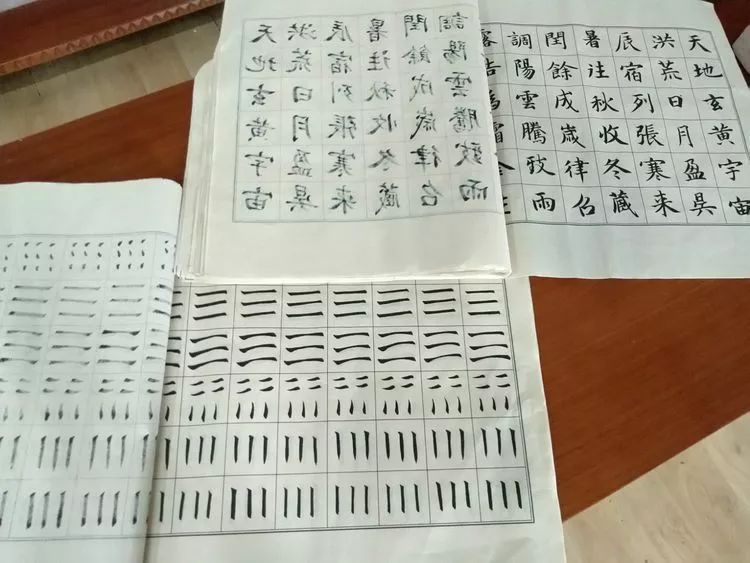 天地玄黃宇宙
洪荒日月盈昃
辰宿列張寒来
暑往秋收冬藏
閏餘成歲律召
調陽雲騰致雨
天地玄黃宇宙
洪荒日月盈昃
辰宿列張寒来
暑往秋收冬藏
閏餘成歲律召
調陽雲騰致雨